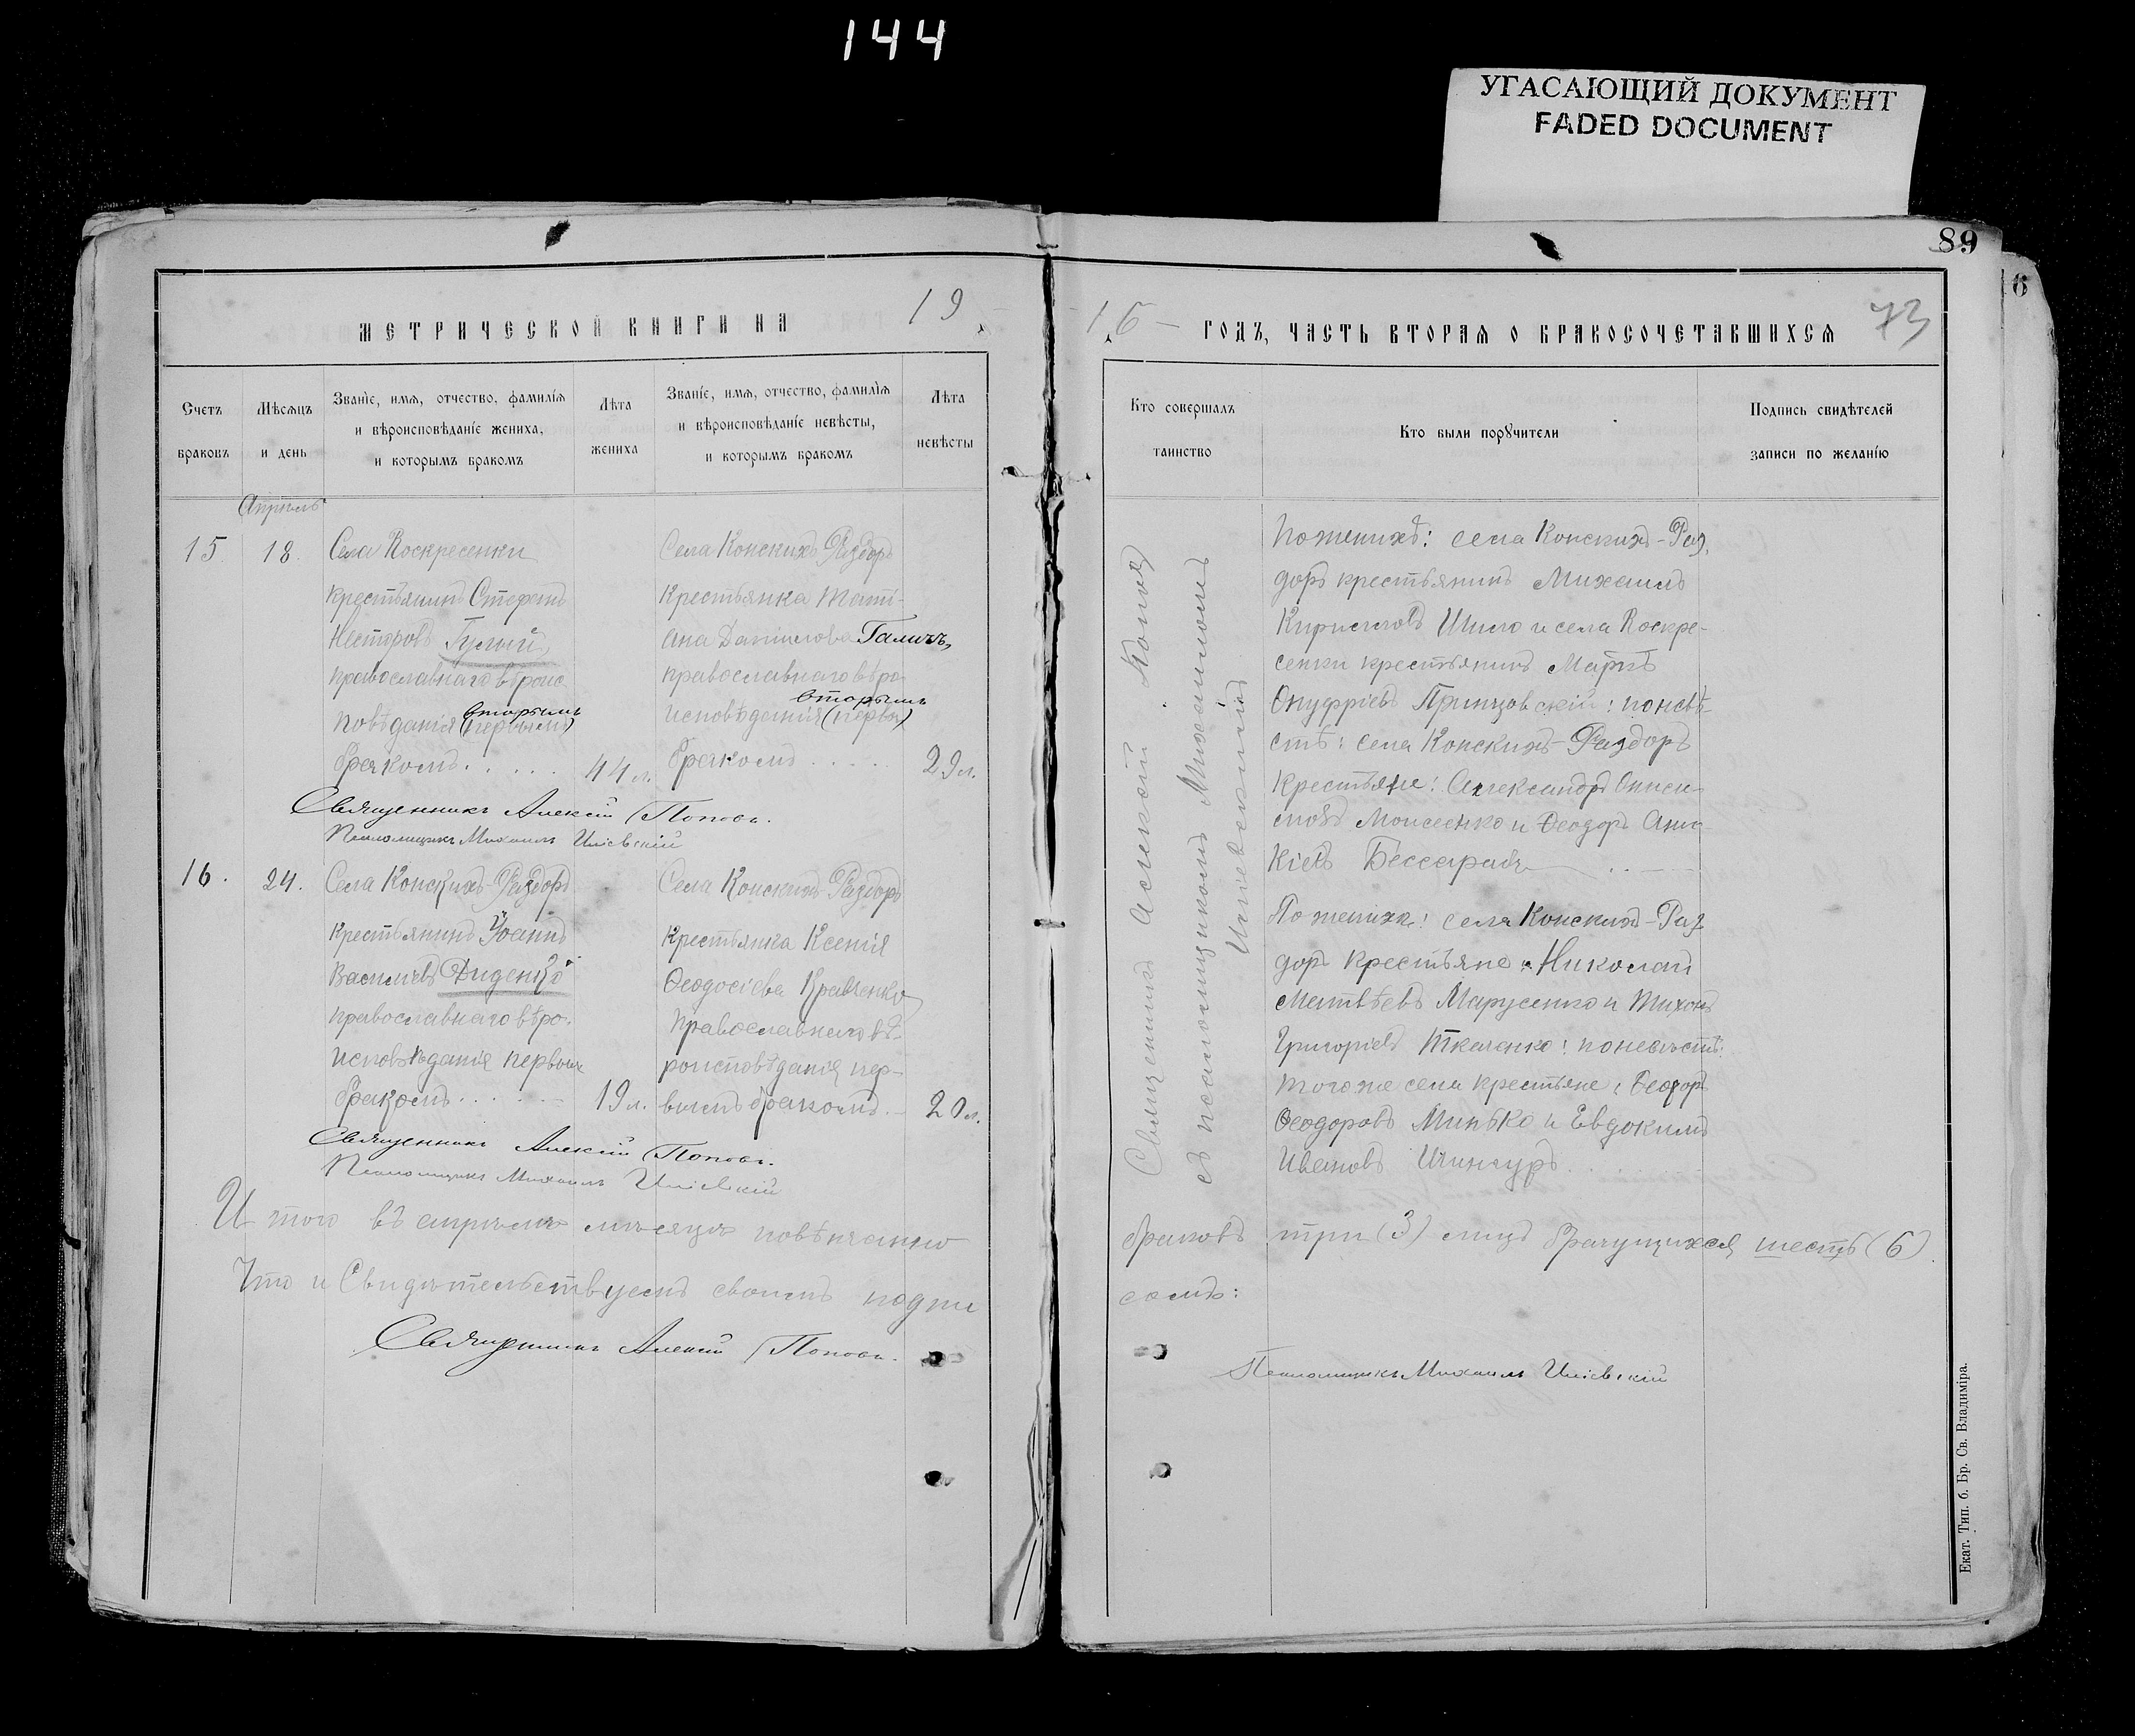 144
УГАСАЮЩИЙ ДОКУМЕНТ
FADED DOCUMENT
89
6
МЕТРИЧЕСКОЙ КНИГИ НА 19
Счетъ браковъ
Мѣсяцъ и день
Званіе, имя, отчество, фамилія
и вѣроисповѣданіе жениха,
и которымъ бракомъ
Лѣта жениха
Званіе, имя, отчество, фамилія
и вѣроисповѣданіе невѣсты,
и которымъ бракомъ
Лѣта невѣсты
Апрѣль
15
18.
Села Воскресенки
крестьянинъ Стефанъ
Несторовъ Гулый,
православнаго вѣроис-
вторымъ
повѣданія (первымъ)
бракомъ . . . . .
44 л.
Села Конскихъ Раздоръ
крестьянка Тати-
ана Даниилова Галичъ,
православнаго вѣро-
вторымъ
исповѣданія (первы)
бракомъ . . . . .
29 л.
Священникъ Алексій Поповъ.
Псаломщикъ Михаилъ Иліевскій
16.
24.
Села Конскихъ-Раздоръ
крестьянинъ Іоаннъ
Васильевъ Диденко
православнаго вѣро-
исповѣданія первымъ
бракомъ . . . . .
19 л.
Села Конскихъ Раздоръ
крестьянка Ксенія
Ѳеодосіева Кравченко
православнаго вѣ-
роисповѣданія пер-
вымъ бракомъ . –
20 л.
Священникъ Алексій Поповъ.
Псаломщикъ Михаилъ Иліевскій
Итого въ апрѣлѣ мѣсяцѣ повѣнчанно
Что и Свидѣтельствуемъ своимъ подпи
Священникъ Алексій Поповъ.
16 – ГОДЪ, ЧАСТЬ ВТОРАЯ О БРАКОСОЧЕТАВШИХСЯ
73
Кто совершалъ таинство
Кто были поручители
Подпись свидѣтелей записи по желанію
Священникъ Алексій Поповъ
съ псаломщикомъ Михаиломъ
Иліевскимъ
По женихѣ: села Конскихъ-Раз-
доръ крестьянинъ Михаилъ
Кирилловъ Шило и села Воскре-
сенки крестьянинъ Маркъ
Онуфріевъ Принцовскій: по невѣ-
стѣ: села Конскихъ-Раздоръ
крестьяне: Александръ Ониси-
мовъ Моисеенко и Ѳеодоръ Ани-
кіевъ Бессарабъ
По женихѣ: села Конскихъ-Раз
доръ крестьяне: Николай
Матвѣевъ Марусенко и Тихонъ
Григорьевъ Ткаченко: по невѣстѣ:
того же села крестьяне: Ѳеодоръ
Ѳеодоровъ Минько и Евдокимъ
Ивановъ Шинкуръ . . .
браковъ три (3) лицъ брачущихся шесть (6).
сомъ:
Псаломщикъ Михаилъ Иліевскій
Екат. Тип. б. Бр. Св. Владиміра.